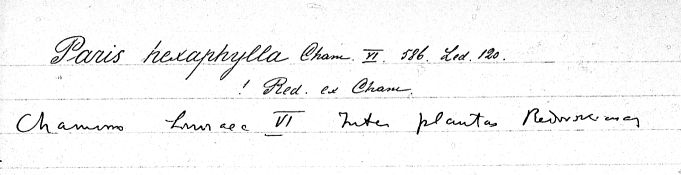 Paris hexaphylla Cham. VI. 586. Led. 120.
! Red. ex Cham.
Chamisso Linnaea VI Inter plantas Redowskianas